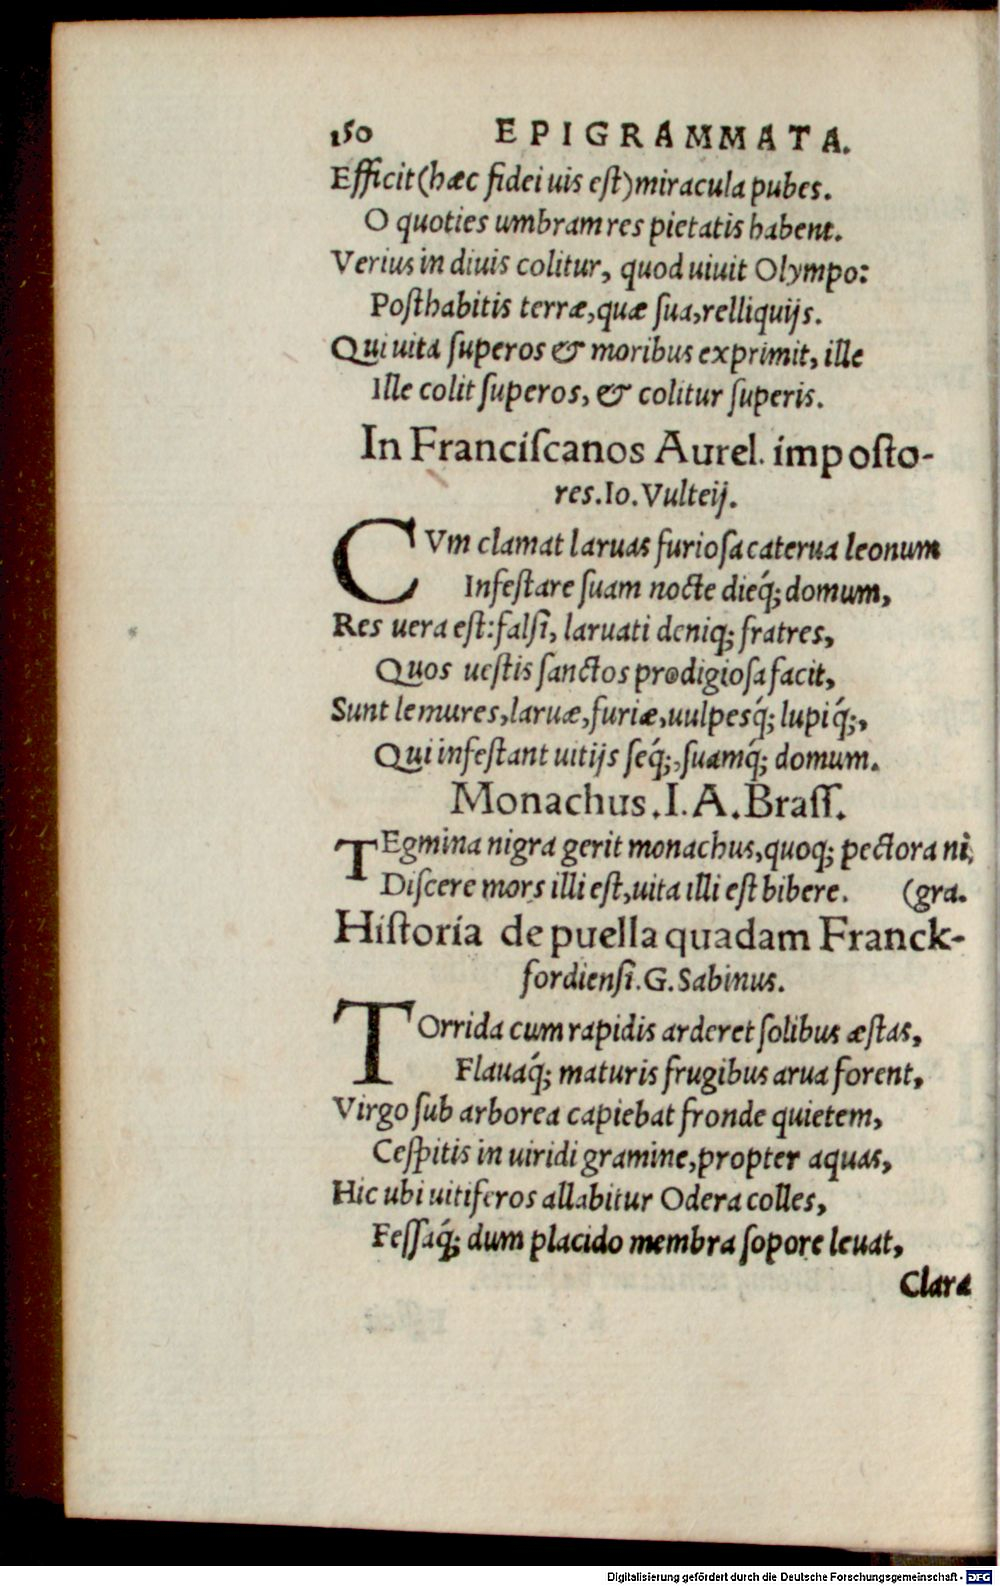 150 EPIGRAMMATA.
Efficit (hæc fidei uis eſt) miracula pubes.
O quoties umbram res pietatis habent.
Verius in diuis colitur, quod uiuit Olympo:
Poſthabitis terræ, quæ ſua, relliquijs.
Qui uita ſuperos & moribus exprimit, ille
Ille colit ſuperos, & colitur ſuperis.
In Franciſcanos Aurel. impoſto-
res. Io. Vulteij.
CVm clamat laruas furioſa caterua leonum
Infeſtare ſuam nocte dieq́; domum,
Res uera eſt: falſi, laruati deniq; fratres,
Quos ueſtis ſanctos prodigioſa facit,
Sunt lemures, laruæ, furiæ, uulpesq́; lupiq́;,
Qui infeſtant uitijs ſeq́;, ſuamq́; domum.
Monachus. I. A. Braſſ.
TEgmina nigra gerit monachus, quoq; pectora ni,
Diſcere mors illi eſt, uita illi eſt bibere. (gra.
Hiſtoria de puella quadam Franck-
fordienſi. G. Sabinus.
TOrrida cum rapidis arderet ſolibus æſtas,
Flauaq́; maturis frugibus arua forent,
Virgo ſub arborea capiebat fronde quietem,
Ceſpitis in uiridi gramine, propter aquas,
Hic ubi uitiferos allabitur Odera colles,
Feſſaq́; dum placido membra ſopore leuat,
Clara
Digitalisierung gefördert durch die Deutsche Forschungsgemeinschaft - DFG